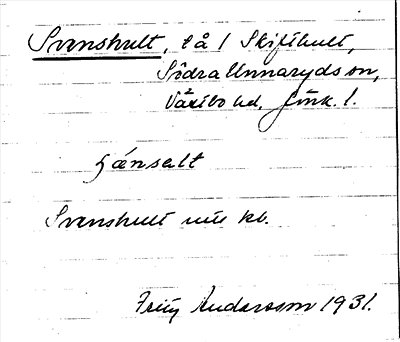 Svenshult, lå / Skifthult,
Södra Unnaryds sn,
Västbo hd, Jönk. l.
svænsəlt
Svenshult nu kb.
Fritz Andersson 1931.